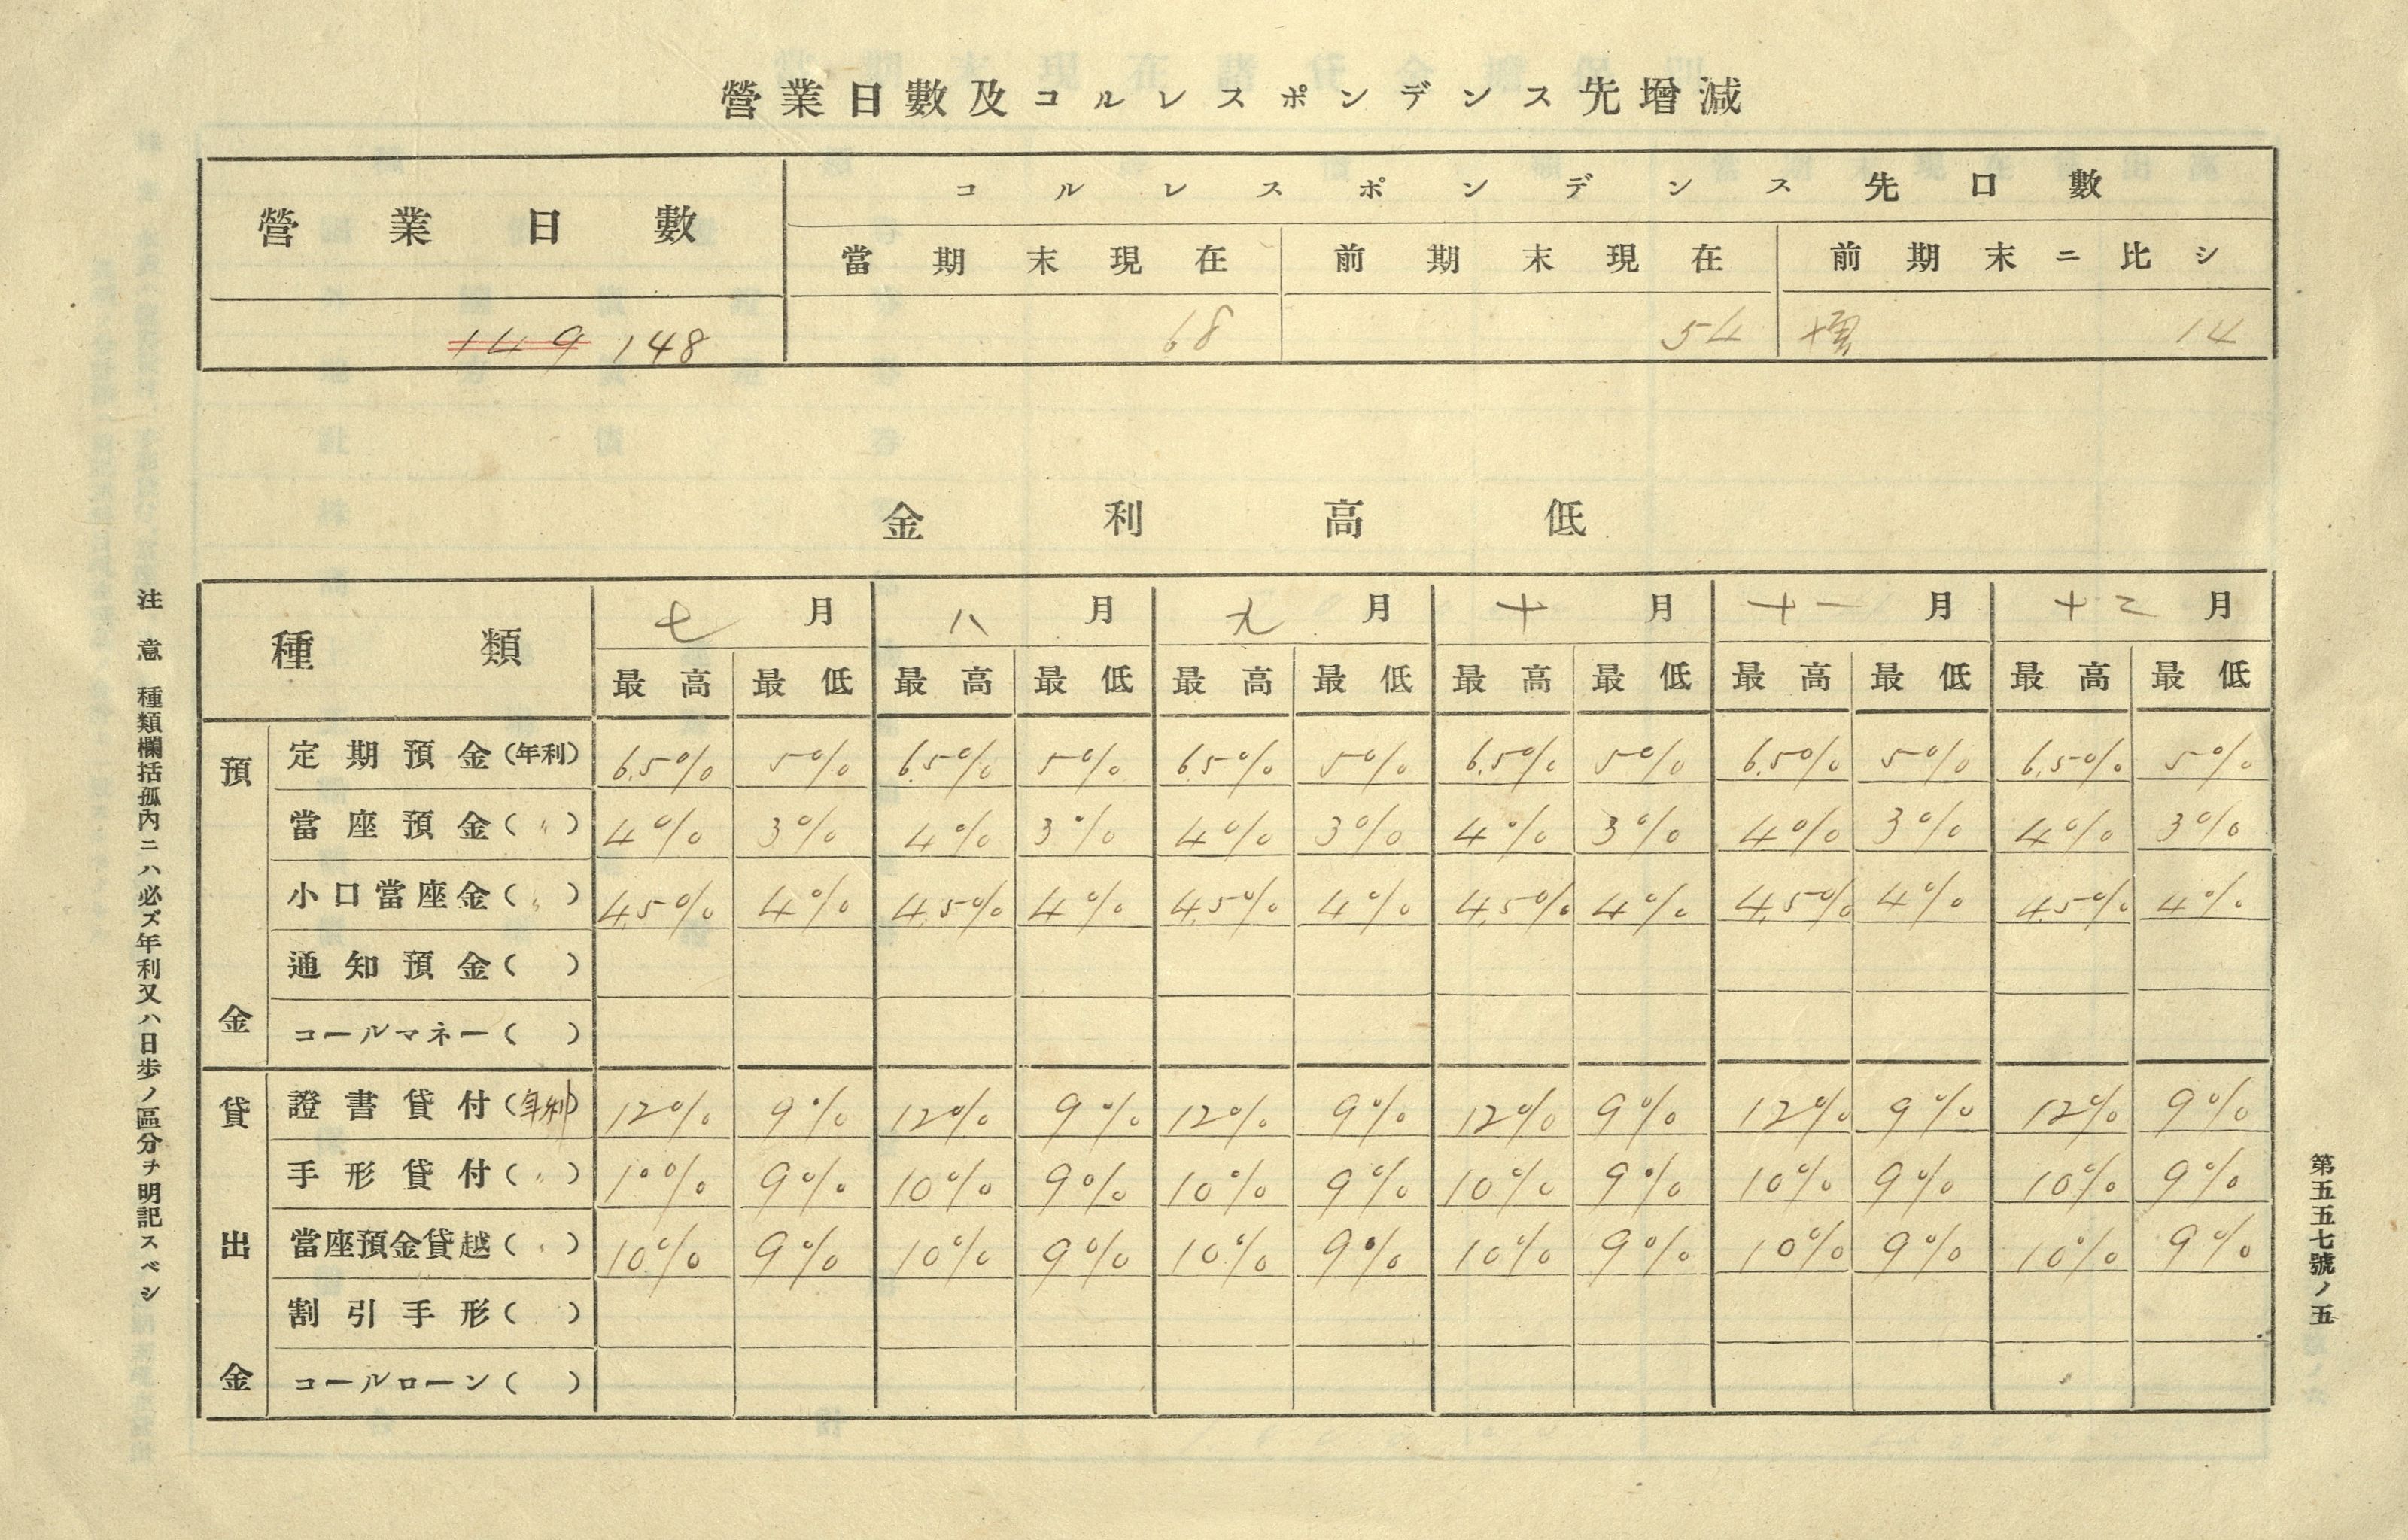 營業日數及コルレスポンデンス先增減
營業日數 コルレスポンデンス先口數
當期末現在 前期末現在 前期末ニ比シ
149 148 68 54 増 14
金利高低
種類 七月 八月 九月 十月 十一月 十二月
最高 最低 最高 最低 最高 最低 最高 最低 最高 最低 最高 最低
預金
定期預金(年利) 6.5% 5% 6.5% 5% 6.5% 5% 6.5% 5% 6.5% 5% 6.5% 5%
當座預金(〃) 4% 3% 4% 3% 4% 3% 4% 3% 4% 3% 4% 3%
小口當座金(〃) 4.5% 4% 4.5% 4% 4.5% 4% 4.5% 4% 4.5% 4% 4.5% 4%
通知預金( )
コールマネー( )
貸出金
證書貸付(年利) 12% 9% 12% 9% 12% 9% 12% 9% 12% 9% 12% 9%
手形貸付(〃) 10% 9% 10% 9% 10% 9% 10% 9% 10% 9% 10% 9%
當座預金貸越(〃) 10% 9% 10% 9% 10% 9% 10% 9% 10% 9% 10% 9%
割引手形( )
コールローン( )
注意 種類欄括孤內ニハ必ズ年利又ハ日歩ノ區分ヲ明記スベシ
第五五七號ノ五